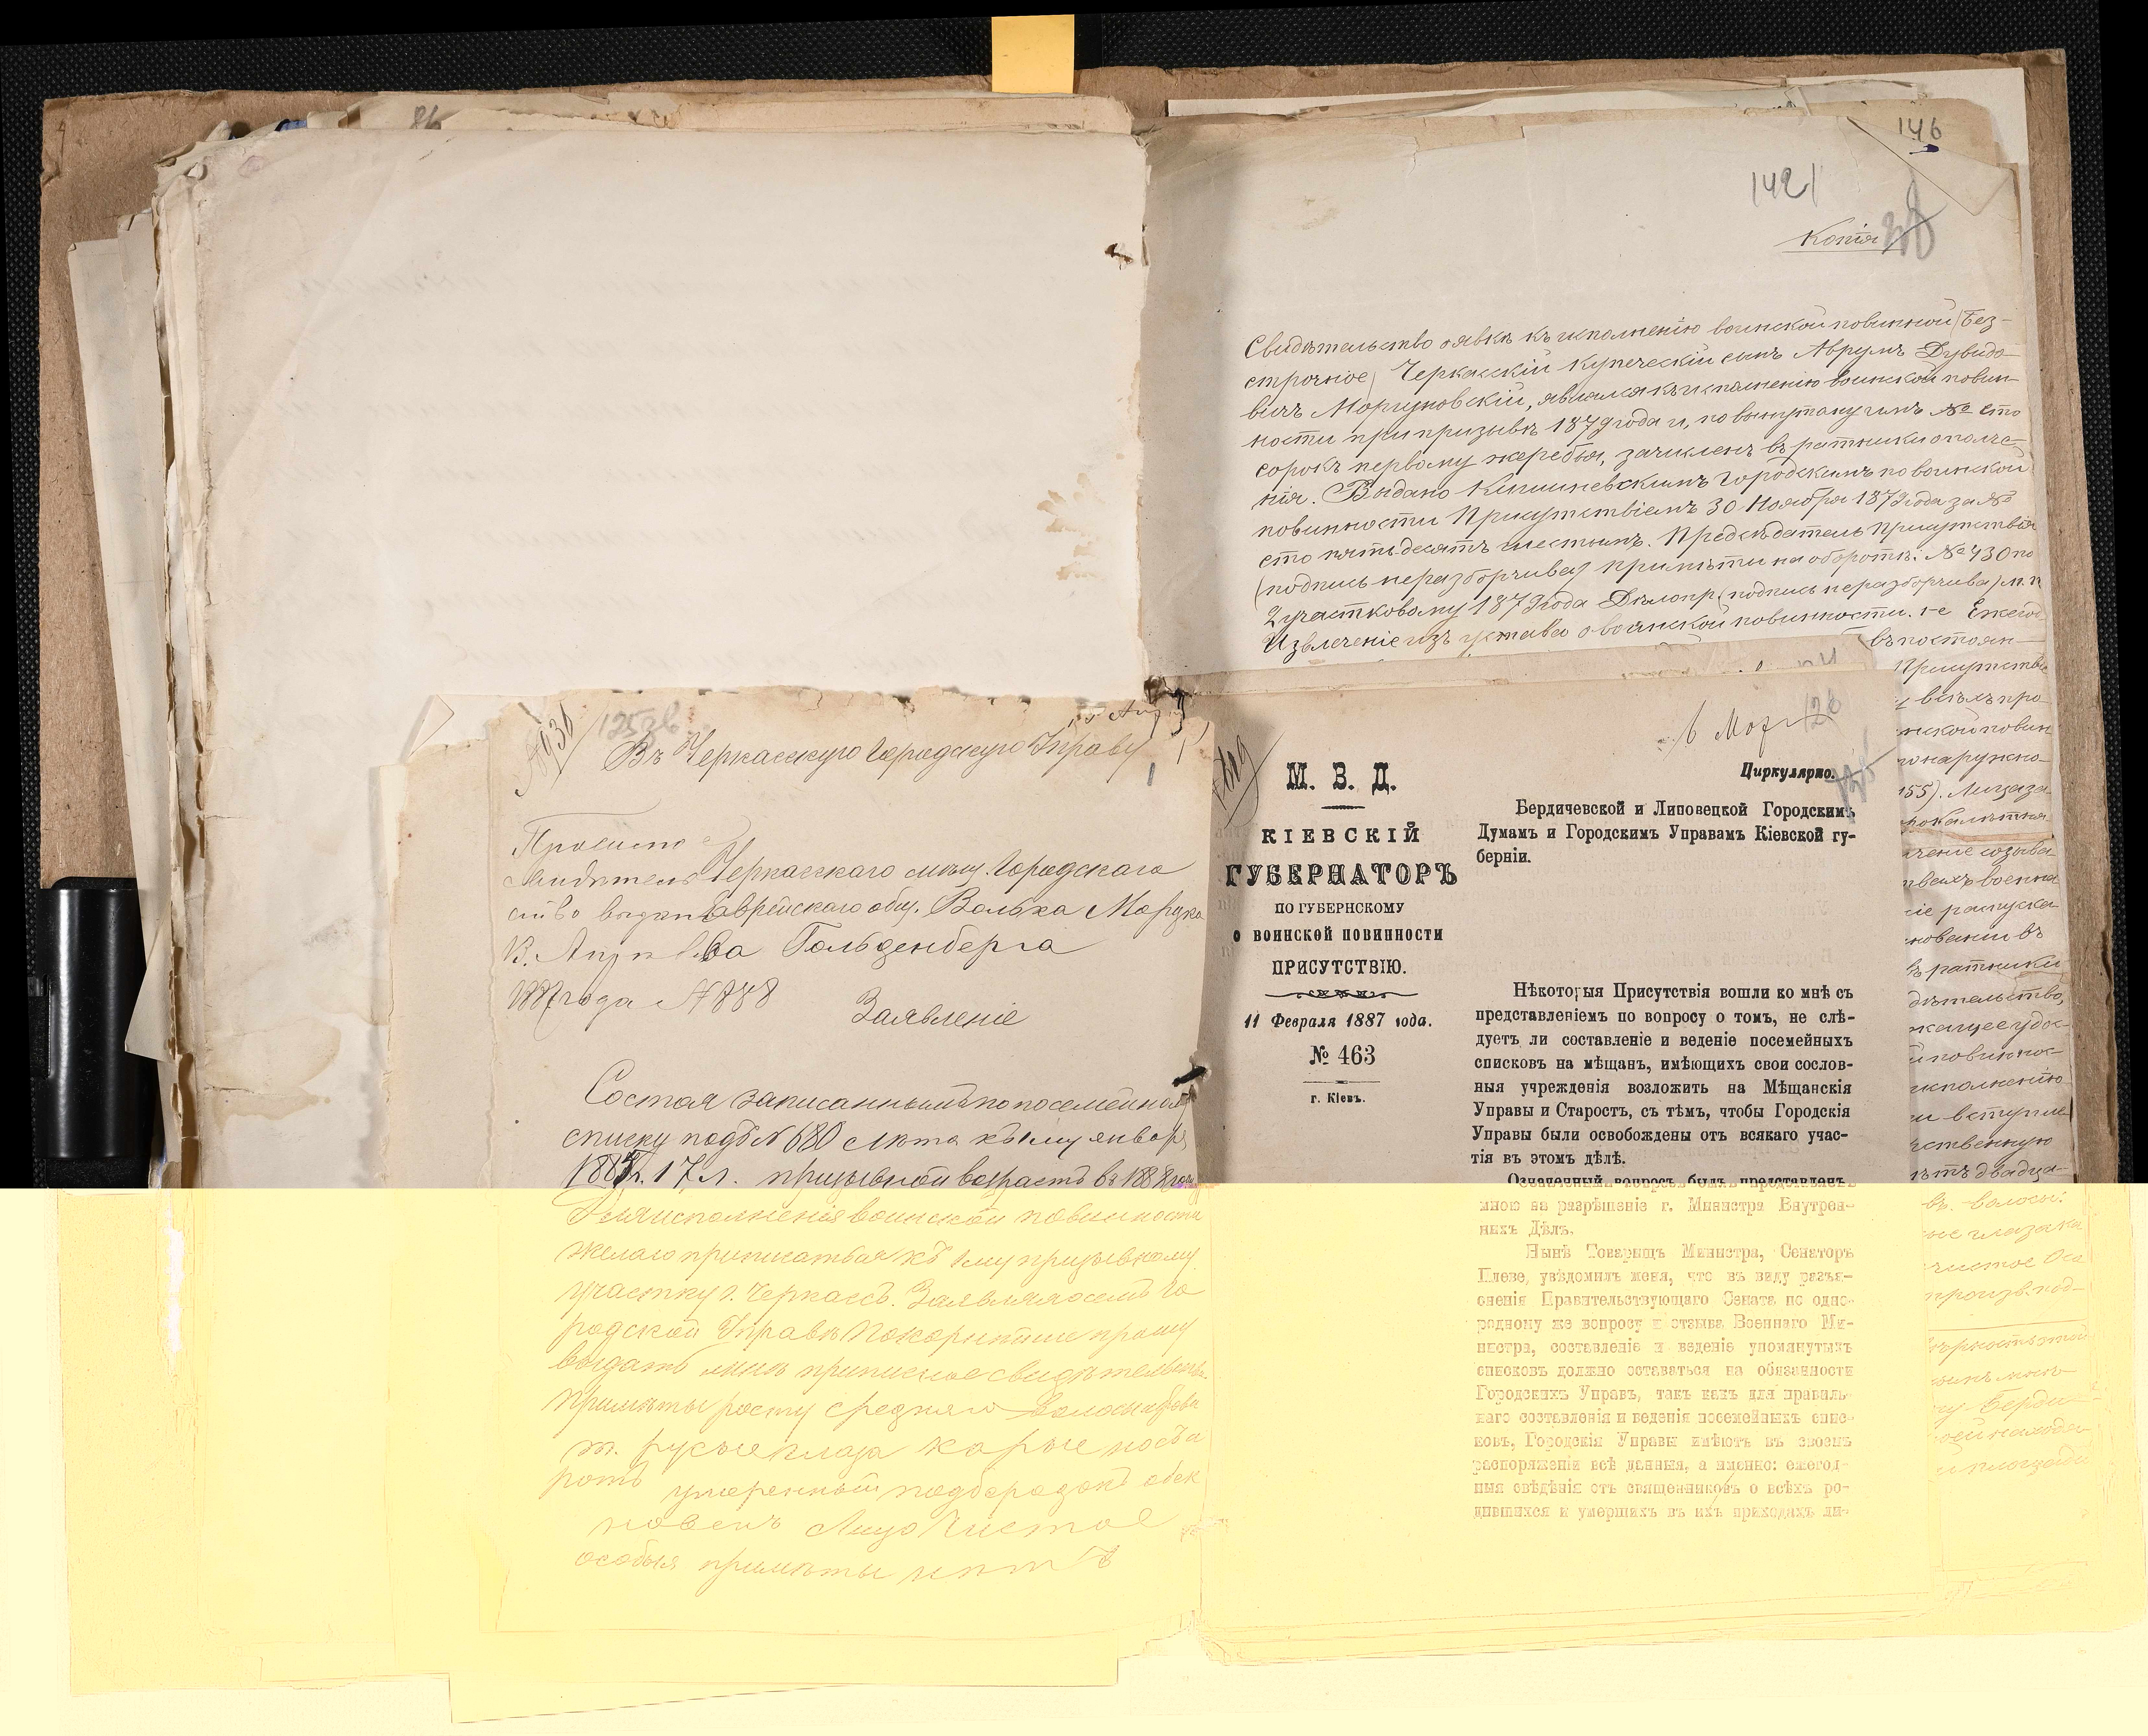 86
146
142
Копія
Свидѣтельство о явкѣ къ исполненію воинской повинной (Без-
строчное) Черкасскій купеческій сынъ Аврумъ Дувидо-
вичъ Моргуновскій, являлся къ исполненію воинской повин-
ности при призывѣ 1879 года и, по вынутому имъ № сто
сорокъ первому жеребья, зачисленъ въ ратники ополче-
нія. Выдано Кишиневскимъ Городскимъ по воинской
повинности Присутствіемъ 30 Ноября 1879 года за №
сто пятьдесятъ шестымъ. Предсѣдатель Присутствія
(подпись неразборчива) примѣты на оборотѣ: № 430 по
2 участковому 1879 года Дѣлопр. (подпись неразборчива) м. п.
Извлеченіе изъ устава о воинской повинности. 1-е Ежегод
въ постоян-
Присутстві
всѣхъ про
нской повин
наружно-
155). Лица за-
созыва
военна
распуска-
новании въ
въ ратники
дѣтельство,
исполненію
вступле
ственную
двадца-
въ. волосы:
глаза ка
чистое Осо
произв. под-
Берди
1253
Въ Черкасскую Городскую Управу
Черкасскаго мѣщ. Городскаго
ство выдан Еврейскаго общ. Волька Мордко
ва Гольденберга
1887 года № 888
Заявленіе
Состоя записаннымъ по посемейному
списку подъ № 680 лѣта къ 1му январ
188 г. 17 л. призывной возрастъ въ 1888 году
Для исполненія воинской повинности
желаю приписаться къ 1му призывному
участку г. Черкассъ. Заявляя о семъ Го
родской Управѣ покорнѣйше прошу
выдать мнѣ приписное свидѣтельство.
Примѣты росту средняго волосы брови
т. русые глаза карые носъ и
ротъ умеренный подбородокъ обык
новенъ Лицо Чистое
особыя примѣты нѣтъ
М. В. Д.
КІЕВСКІЙ
ГУБЕРНАТОРЪ
ПО ГУБЕРНСКОМУ
О ВОИНСКОЙ ПОВИННОСТИ
ПРИСУТСТВІЮ.
11 Февраля 1887 года.
№ 463
г. Кіевъ.
6 Мар
128
Циркулярно.
Бердичевской и Липовецкой Городскимъ
Думамъ и Городскимъ Управамъ Кіевской гу-
берніи.
Нѣкоторыя Присутствія вошли ко мнѣ съ
представленіемъ по вопросу о томъ, не слѣ-
дуетъ ли составленіе и веденіе посемейныхъ
списковъ на мѣщанъ, имѣющихъ свои сослов-
ныя учрежденія возложить на Мѣщанскія
Управы и Старостъ, съ тѣмъ, чтобы Городскія
Управы были освобождены отъ всякаго учас-
тія въ этомъ дѣлѣ.
Означенный вопросъ былъ представленъ
мною на разрѣшеніе г. Министра Внутрен-
нихъ Дѣлъ.
Нынѣ Товарищъ Министра, Сенаторъ
Плеве, увѣдомилъ меня, что въ виду разъя-
сненія Правительствующаго Сената по одно-
родному же вопросу и отзыва Военнаго Ми-
нистра, составленіе и веденіе упомянутыхъ
списковъ должно оставаться на обязанности
Городскихъ Управъ, такъ какъ для правиль-
наго составленія и веденія посемейныхъ спис-
ковъ, Городскія Управы имѣютъ въ своемъ
распоряженіи всѣ данныя, а именно: ежегод-
ныя свѣдѣнія отъ священниковъ о всѣхъ ро-
дившихся и умершихъ въ ихъ приходахъ ли-